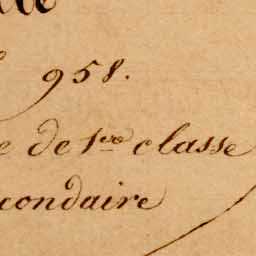 958.
e de 1re classe
condaire